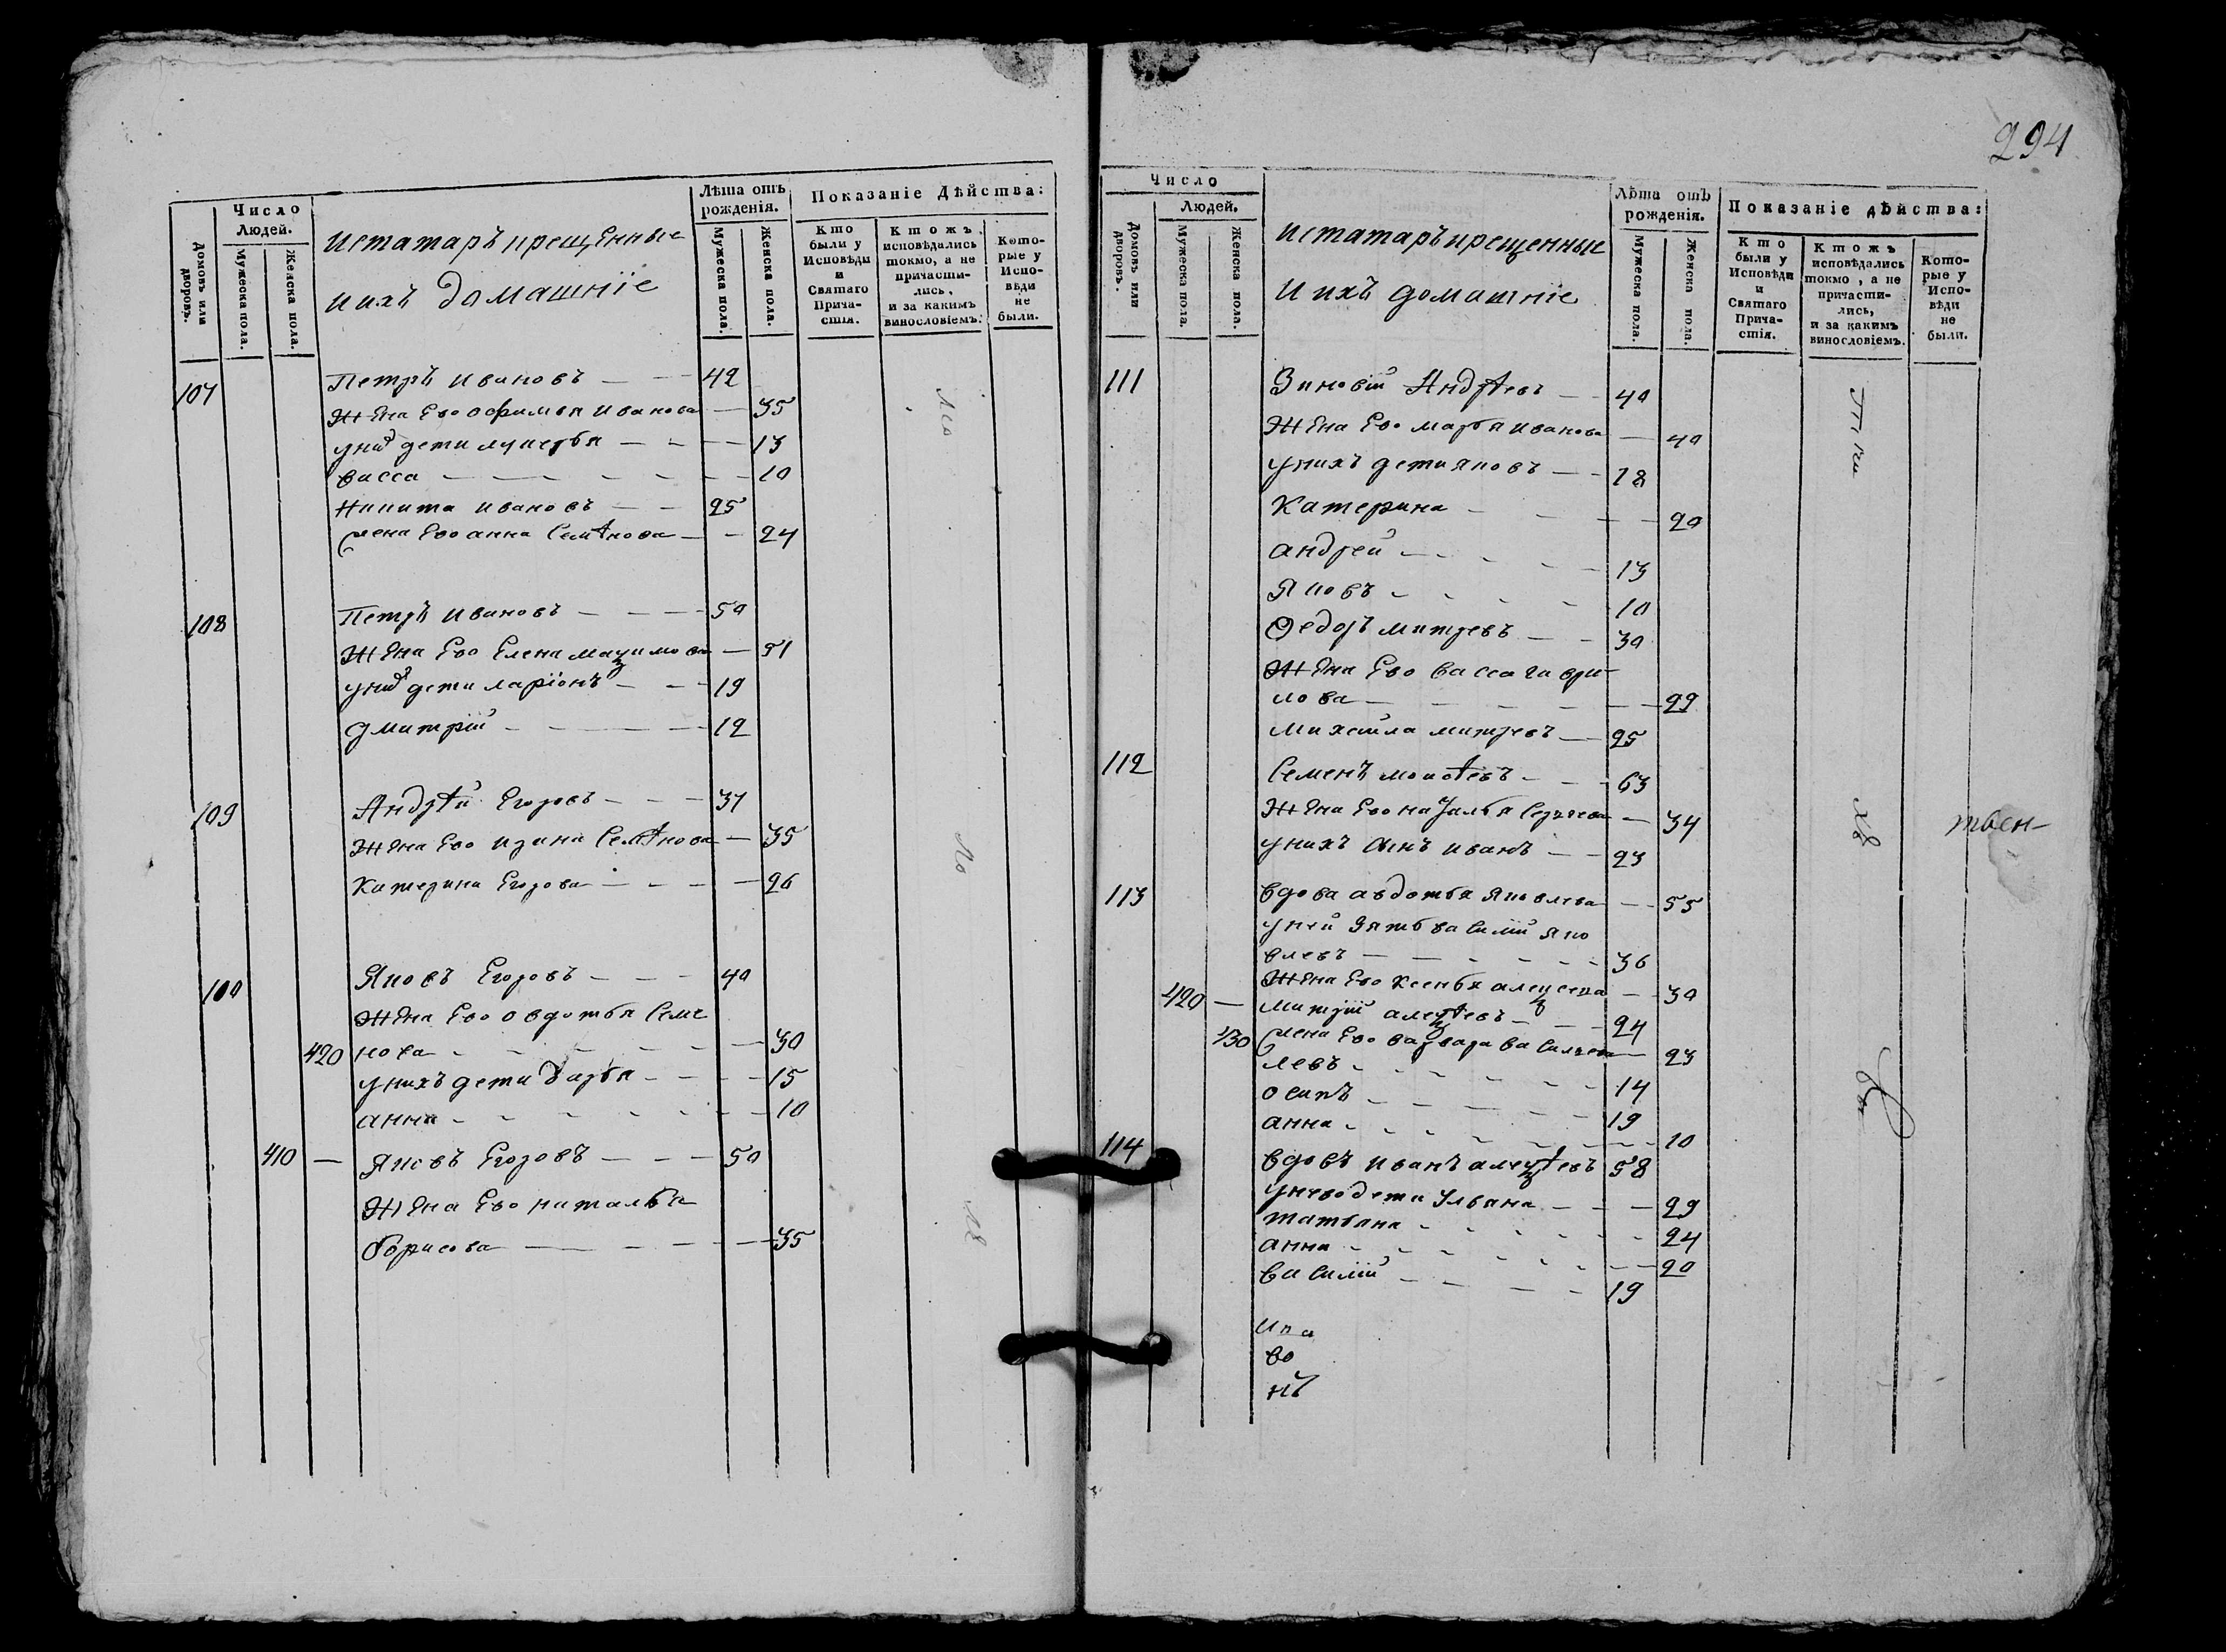 294
Число
Людей.
Домовъ или дворовъ.
Мужеска пола.
Женска пола.
истатаръ крещенные
и ихъ домашніе
Лѣта отъ рожденія.
Мужеска пола.
Женска пола.
Показаніе Дѣйства:
Кто были у Исповѣди и Святаго Прича- стія.
Ктожъ исповѣдались токмо, а не причасти- лись, и за какимъ винословіемъ.
Кото- рые у Испо- вѣди не были.
107 Петръ Ивановъ — 42
Жена Ево офимья Иванова — 35
у них дети лукерья — 13
васса — 10
Никита Ивановъ — 25
жена Ево анна Семѣнова — 24
108 Петръ Ивановъ — 50
Жена Ево Елена Мазимова — 51
у них дети ларіонъ — 19
дмитрій — 12
109 Андрѣй Егоровъ — 37
Жена Ево Ирина Семѣнова — 35
Катерина Егорова — 26
100 Яковъ Егоровъ — 40
Жена Ево овдотья Семе
420 нова — 30
у нихъ дети дарья — 15
анна — 10
410 — Яковъ Егоровъ — 50
Жена Ево наталья
борисова — 35
Число
Людей.
Домовъ или дворовъ.
Мужеска пола.
Женска пола.
истатаръ крещенные
и ихъ домашніе
Лѣта отъ рожденія.
Мужеска пола.
Женска пола.
Показаніе дѣйства:
Кто были у Исповѣди и Святаго Прича- стія.
Ктожъ исповѣдались токмо, а не причасти- лись, и за какимъ винословіемъ.
Кото- рые у Испо- вѣди не были.
111 Зиновій Андрѣевъ — 40
Жена Ево марья Иванова — 40
у нихъ дети яковъ — 18
Катерина — 20
андрей — 13
Яковъ — 10
Ѳедоръ митревъ — 30
Жена Ево васса гаври-
лова — 29
Михайла митревъ — 25
112 Семенъ моисѣевъ — 63
Жена Ево наталья Сергеева — 34
у нихъ сынъ иванъ — 23
113 вдова авдотья яковлева — 55
у ней зять василій яко
влевъ — 36
Жена Ево Ксенья алексева — 30
420 — митрій алексѣевъ — 24
430 жена Ево варвара василева — 23
левъ — 14
осипъ — 19
анна — 10
114 вдовъ иванъ алексѣевъ 58
у нево дети Ульяна — 29
татьяна — 24
анна — 20
василій — 19
ика
во
нъ
твен-